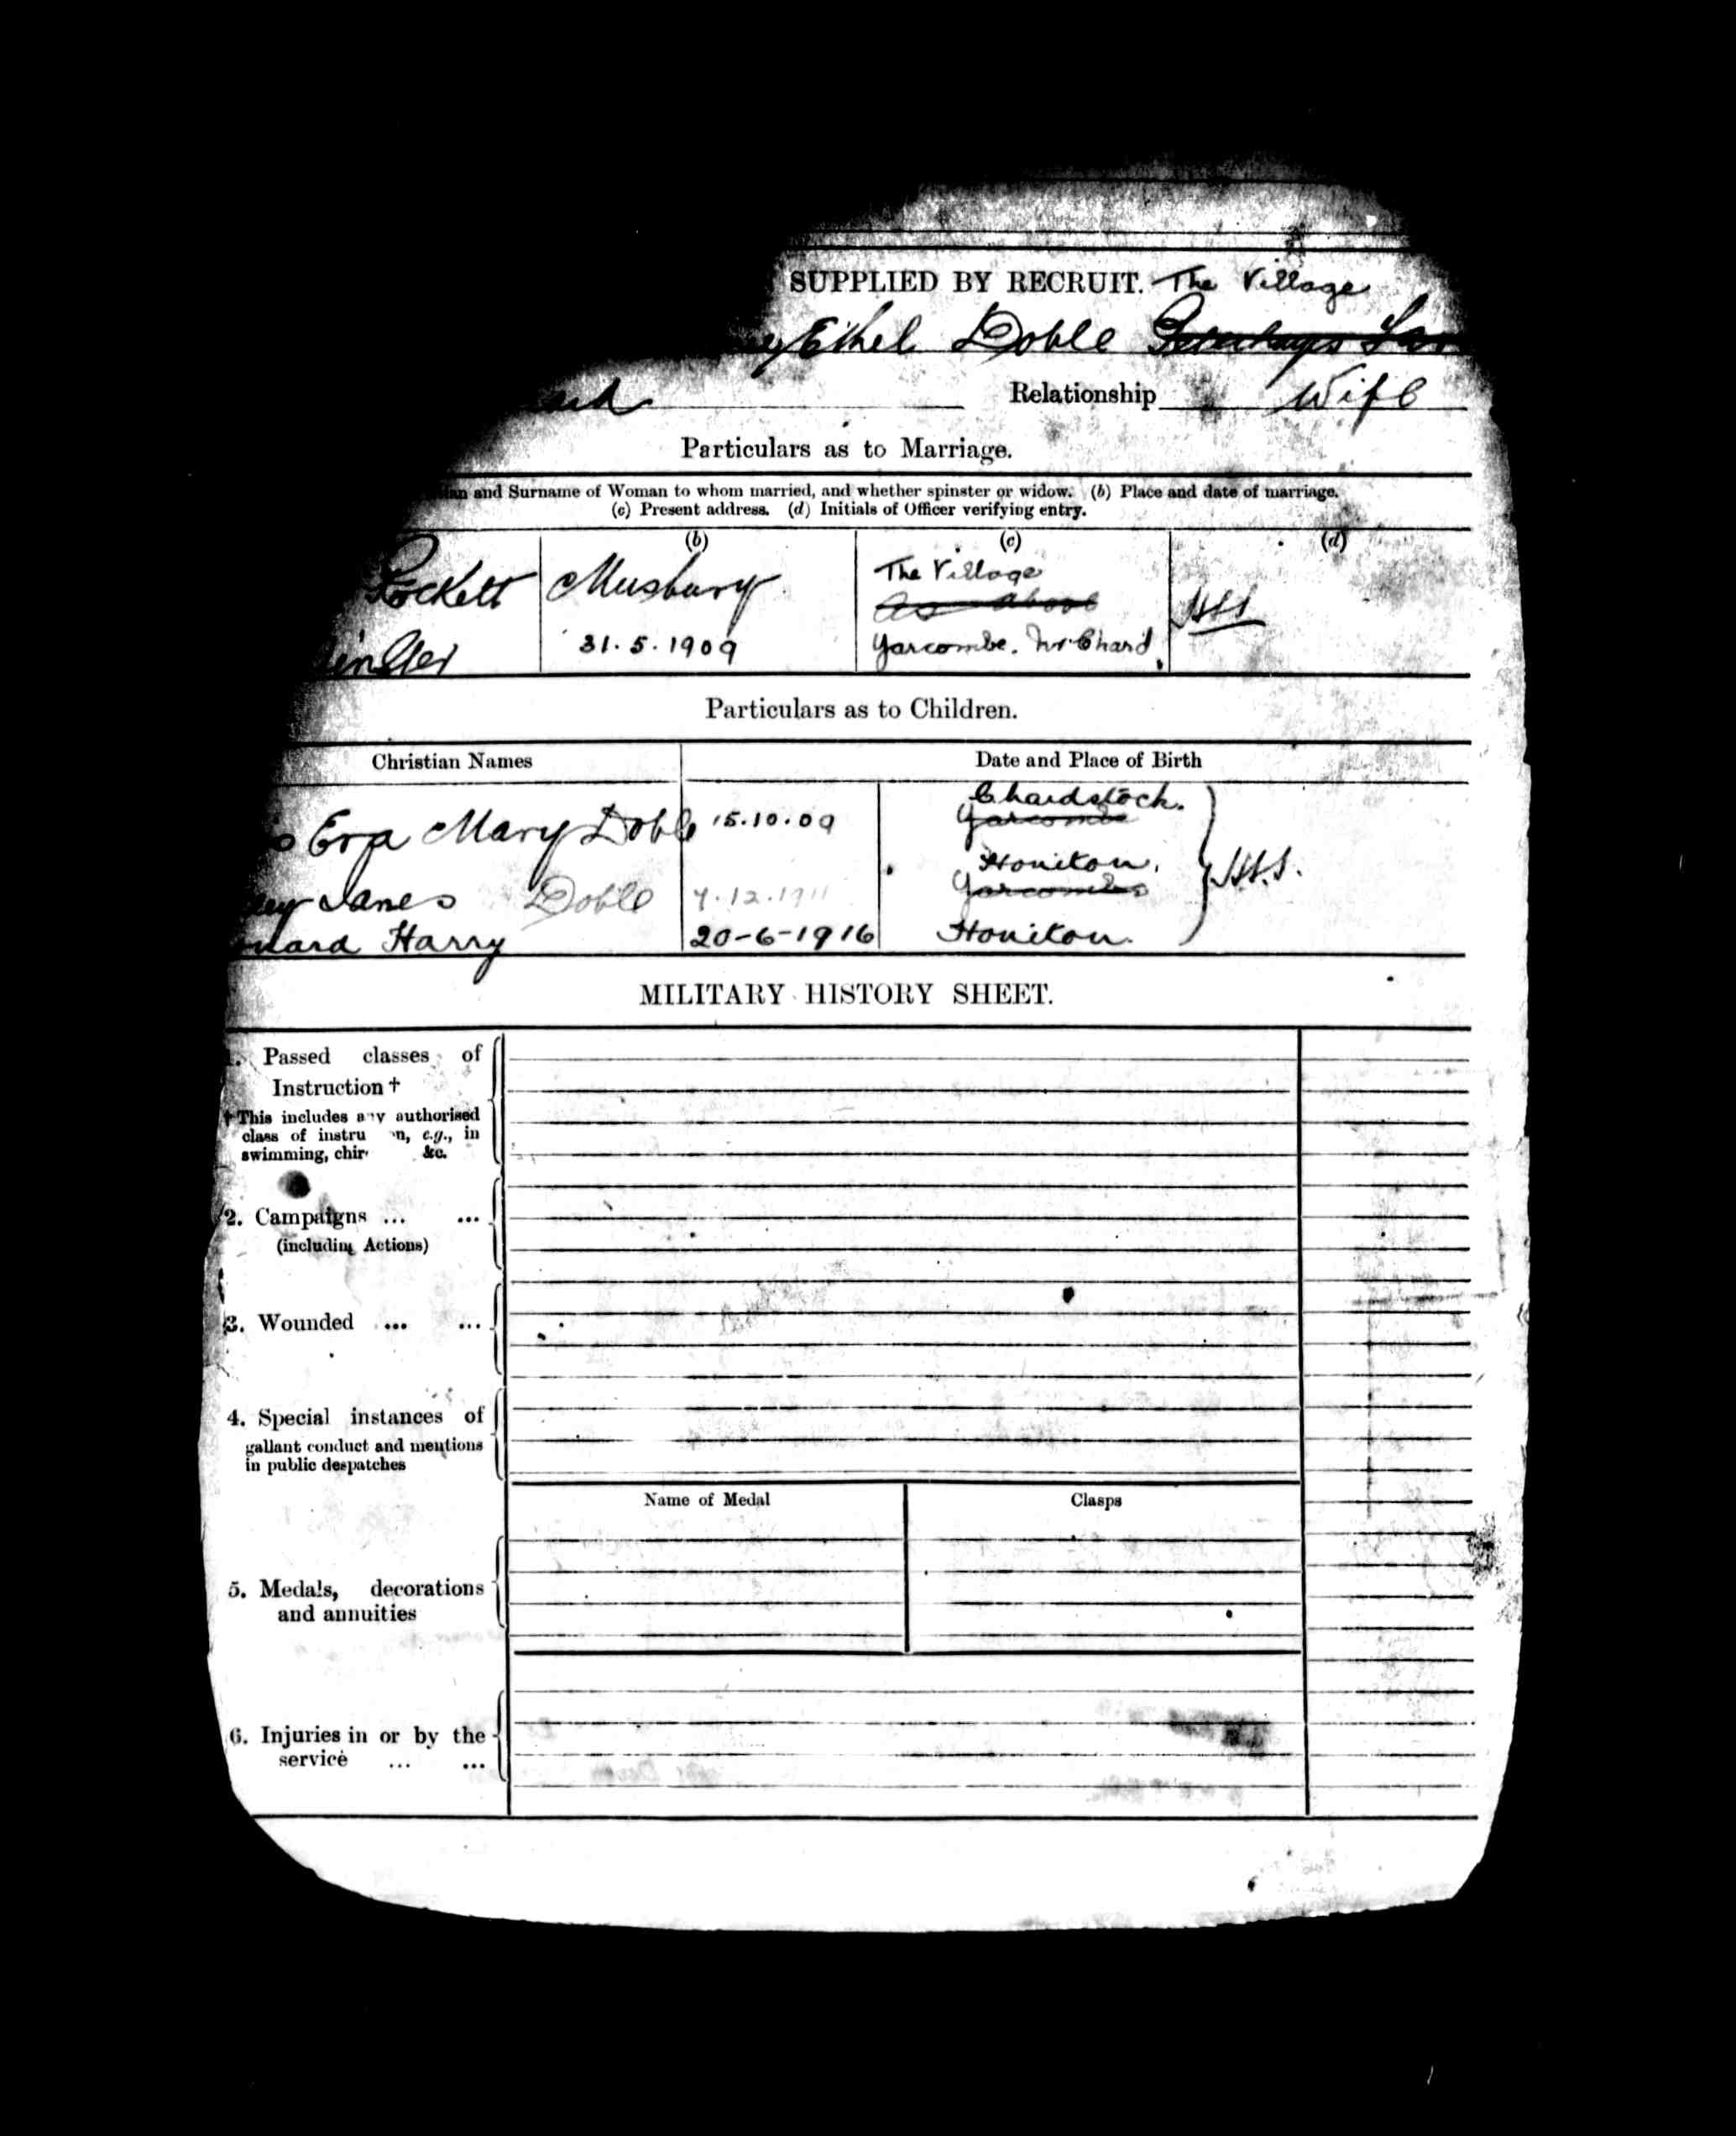 SUPPLIED BY RECRUIT. The Village
Ethel Doble
Relationship Wife
Particulars as to Marriage.
and Surname of Woman to whom married, and whether spinster or widow. (b) Place and date of marriage.
(c) Present address. (d) Initials of Officer verifying entry.
(b) (c) (d)
Lockett Musbury The Village
As above
31.5.1909 Yarcombe. Nr Chard
Particulars as to Children.
Christian Names Date and Place of Birth
Chardstock.
Mary Doble 15.10.09 Yarcombe
Honiton.
Doble 7.12.1911 Yarcombe
Harry 20-6-1916 Honiton.
MILITARY HISTORY SHEET.
1. Passed classes of
Instruction †
† This includes any authorised
class of instru n, e.g., in
swimming, chir &c.
2. Campaigns ... ...
(including Actions)
3. Wounded ... ...
4. Special instances of
gallant conduct and mentions
in public despatches
Name of Medal Clasps
5. Medals, decorations
and annuities
6. Injuries in or by the
service ... ...